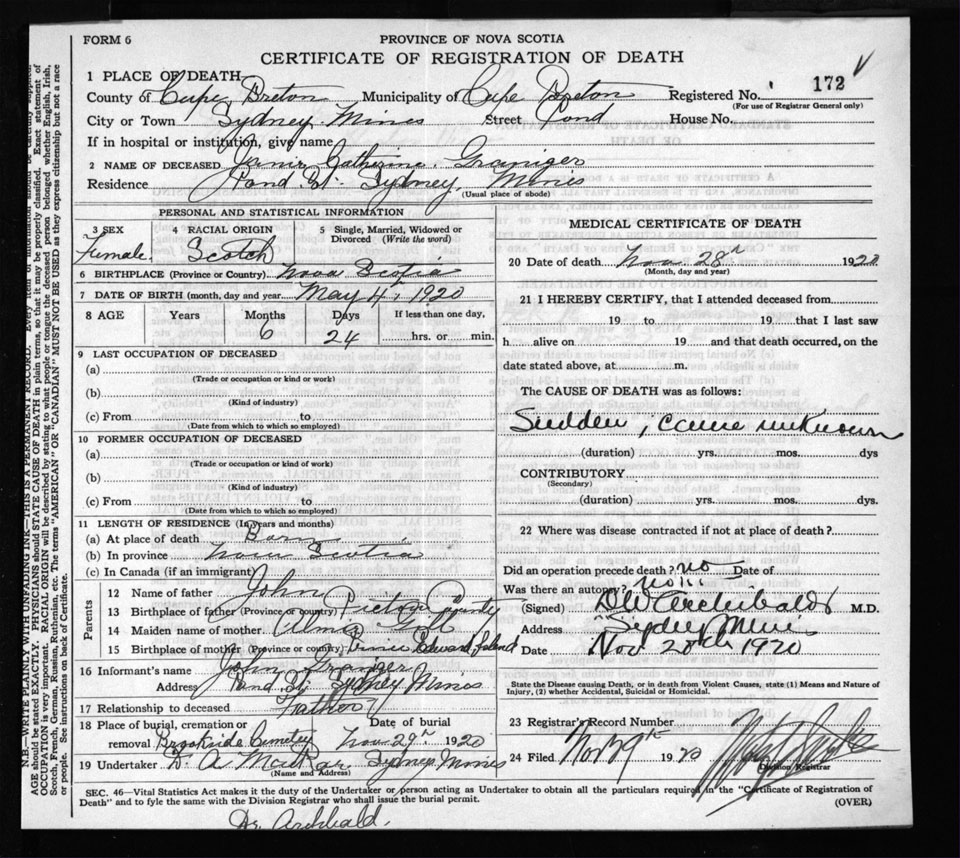 FORM 6
PROVINCE OF NOVA SCOTIA
CERTIFICATE OF REGISTRATION OF DEATH
1 PLACE OF DEATH
County of Cape Breton Municipality of Cape Breton Registered No. 172
(For use of Registrar General only)
City or Town Sydney Mines Street Pond House No.
If in hospital or institution, give name
2 NAME OF DECEASED Janie Catherine Graniger
Residence Pond St. Sydney Mines
(Usual place of abode)
PERSONAL AND STATISTICAL INFORMATION
3 SEX Female
4 RACIAL ORIGIN Scotch
5 Single, Married, Widowed or Divorced (Write the word)
6 BIRTHPLACE (Province or Country) Nova Scotia
7 DATE OF BIRTH (month, day and year) May 4, 1920
8 AGE Years Months Days If less than one day,
6 24 hrs. or min.
9 LAST OCCUPATION OF DECEASED
(a)
(Trade or occupation or kind or work)
(b)
(Kind of industry)
(c) From to
(Date from which to which so employed)
10 FORMER OCCUPATION OF DECEASED
(a)
(Trade or occupation or kind of work)
(b)
(Kind of industry)
(c) From to
(Date from which to which so employed)
11 LENGTH OF RESIDENCE (In years and months)
(a) At place of death Born
(b) In province Nova Scotia
(c) In Canada (if an immigrant)
Parents
12 Name of father John
13 Birthplace of father (Province or country) Pictou County
14 Maiden name of mother Alma
15 Birthplace of mother (Province or country) Prince Edward Island
16 Informant's name John Graniger
Address Pond St Sydney Mines
17 Relationship to deceased Father
18 Place of burial, cremation or removal Brookside Cemetery Date of burial Nov 29th 1920
19 Undertaker Sydney Mines
(Name and Address)
MEDICAL CERTIFICATE OF DEATH
20 Date of death Nov 28th 1920
(Month, day and year)
21 I HEREBY CERTIFY, that I attended deceased from
19 to 19 that I last saw
h alive on 19 and that death occurred, on the
date stated above, at m.
The CAUSE OF DEATH was as follows:
Sudden; cause unknown
(duration) yrs. mos. dys
CONTRIBUTORY
(Secondary)
(duration) yrs. mos. dys.
22 Where was disease contracted if not at place of death?
Did an operation precede death? no Date of
Was there an autopsy?
(Signed) DW Archibald M.D.
Address Sydney Mines
Date Nov 1920
State the Disease causing Death, or in death from Violent Causes, state (1) Means and Nature of
Injury, (2) whether Accidental, Suicidal or Homicidal.
23 Registrar's Record Number
24 Filed Nov 29th 1920
Division Registrar
SEC. 46—Vital Statistics Act makes it the duty of the Undertaker or person acting as Undertaker to obtain all the particulars required in the "Certificate of Registration of
Death" and to fyle the same with the Division Registrar who shall issue the burial permit.
(OVER)
Dr. Archibald.
N.B.—WRITE PLAINLY WITH UNFADING INK—THIS IS A PERMANENT RECORD. Every item of information should be carefully supplied.
AGE should be stated EXACTLY. PHYSICIANS should STATE CAUSE OF DEATH in plain terms, so that it may be properly classified. Exact statement of
OCCUPATION is very important. RACIAL ORIGIN will be described by stating to what people or tongue the deceased person belonged whether English, Irish,
Scotch, French, German, Russian, Ruthenian, etc. The terms "AMERICAN" OR "CANADIAN" MUST NOT BE USED as they express citizenship but not a race
or people. See instructions on back of Certificate.